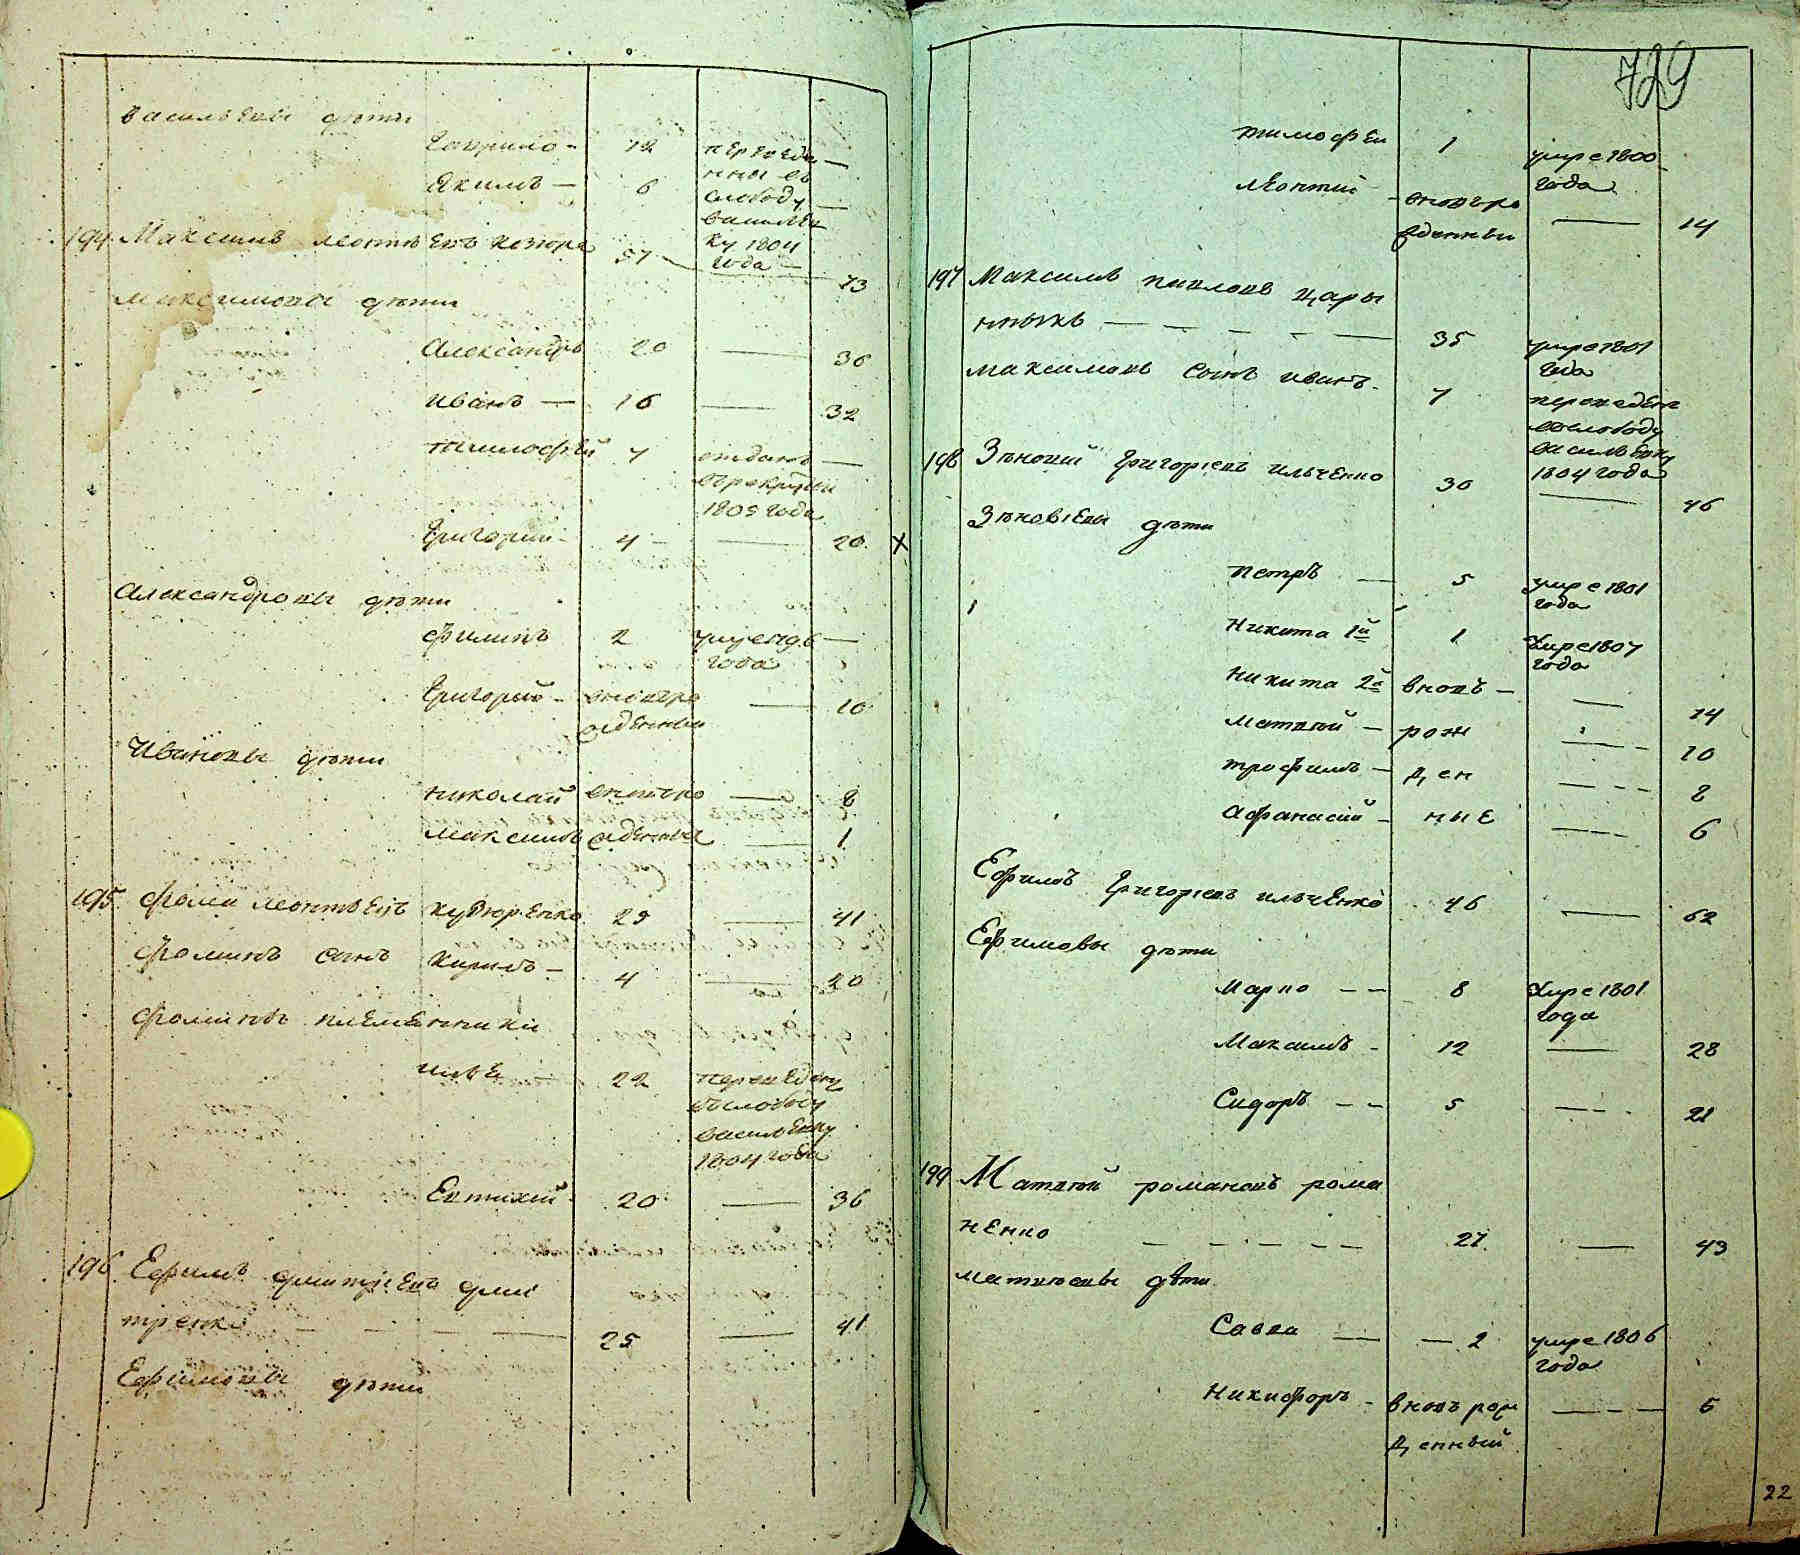 Васильевы дѣти
Гаврило - 12 переведе
нны въ
Якимъ - 6 слободу
Василев
ку 1804
года
194 Максимъ Леонтьевъ 57 - 73
Максимовы дѣти
Александръ 20 - 36
Иванъ - 16 - 32
Тимофей 7 отданъ -
въ рекруты
1805 года
Григорий - 4 - 20
Александровы дѣти
Филипъ 2 умре 1796 -
года
Григорий - вновъро - 10
жденный
Ивановы дѣти
Николай вновъро - 8
Максимъ жденные - 1
195 Фома Леонтьевъ 29 - 41
Фоминъ сынъ Кирилъ - 4 - 20
Фомины племянники
22 переведенъ
въ слободу
Василевку
1804 года
Евтихий 20 - 36
196 Ефимъ Дмитріевъ Дми
тренко - - - - 25 - 41
Ефимовы дѣти
729
Тимофей 1 умре 1800
года
Леонтий - вновъро
жденный - 14
197 Максимъ Павловъ Цары
нныкъ - - - - 35 умре 1801
года
Максимовъ сынъ Иванъ - 7 переведенъ
въ слободу
Василевку
1804 года
198 Зѣновий Григориевъ Ильченко 30 - 46
Зѣновіевы дѣти
Петръ - 5 умре 1801
года
Никита 1й 1 умре 1807
года
Никита 2й вновъ - - 14
Матвѣй - рож - 10
Трофимъ - ден - 8
Афанасий - ные - 6
Ефимъ Григориевъ Ильченко 46 - 62
Ефимовы дѣти
Марко - - 8 умре 1801
года
Максимъ - 12 - 28
Сидоръ - - 5 - 21
199 Матвѣй Романовъ Рома
ненко - - - - - 27 - 43
Матвѣевы дѣти
Савва - - 2 умре 1806
года
Никифоръ - вновъ рож - 6
денный
22